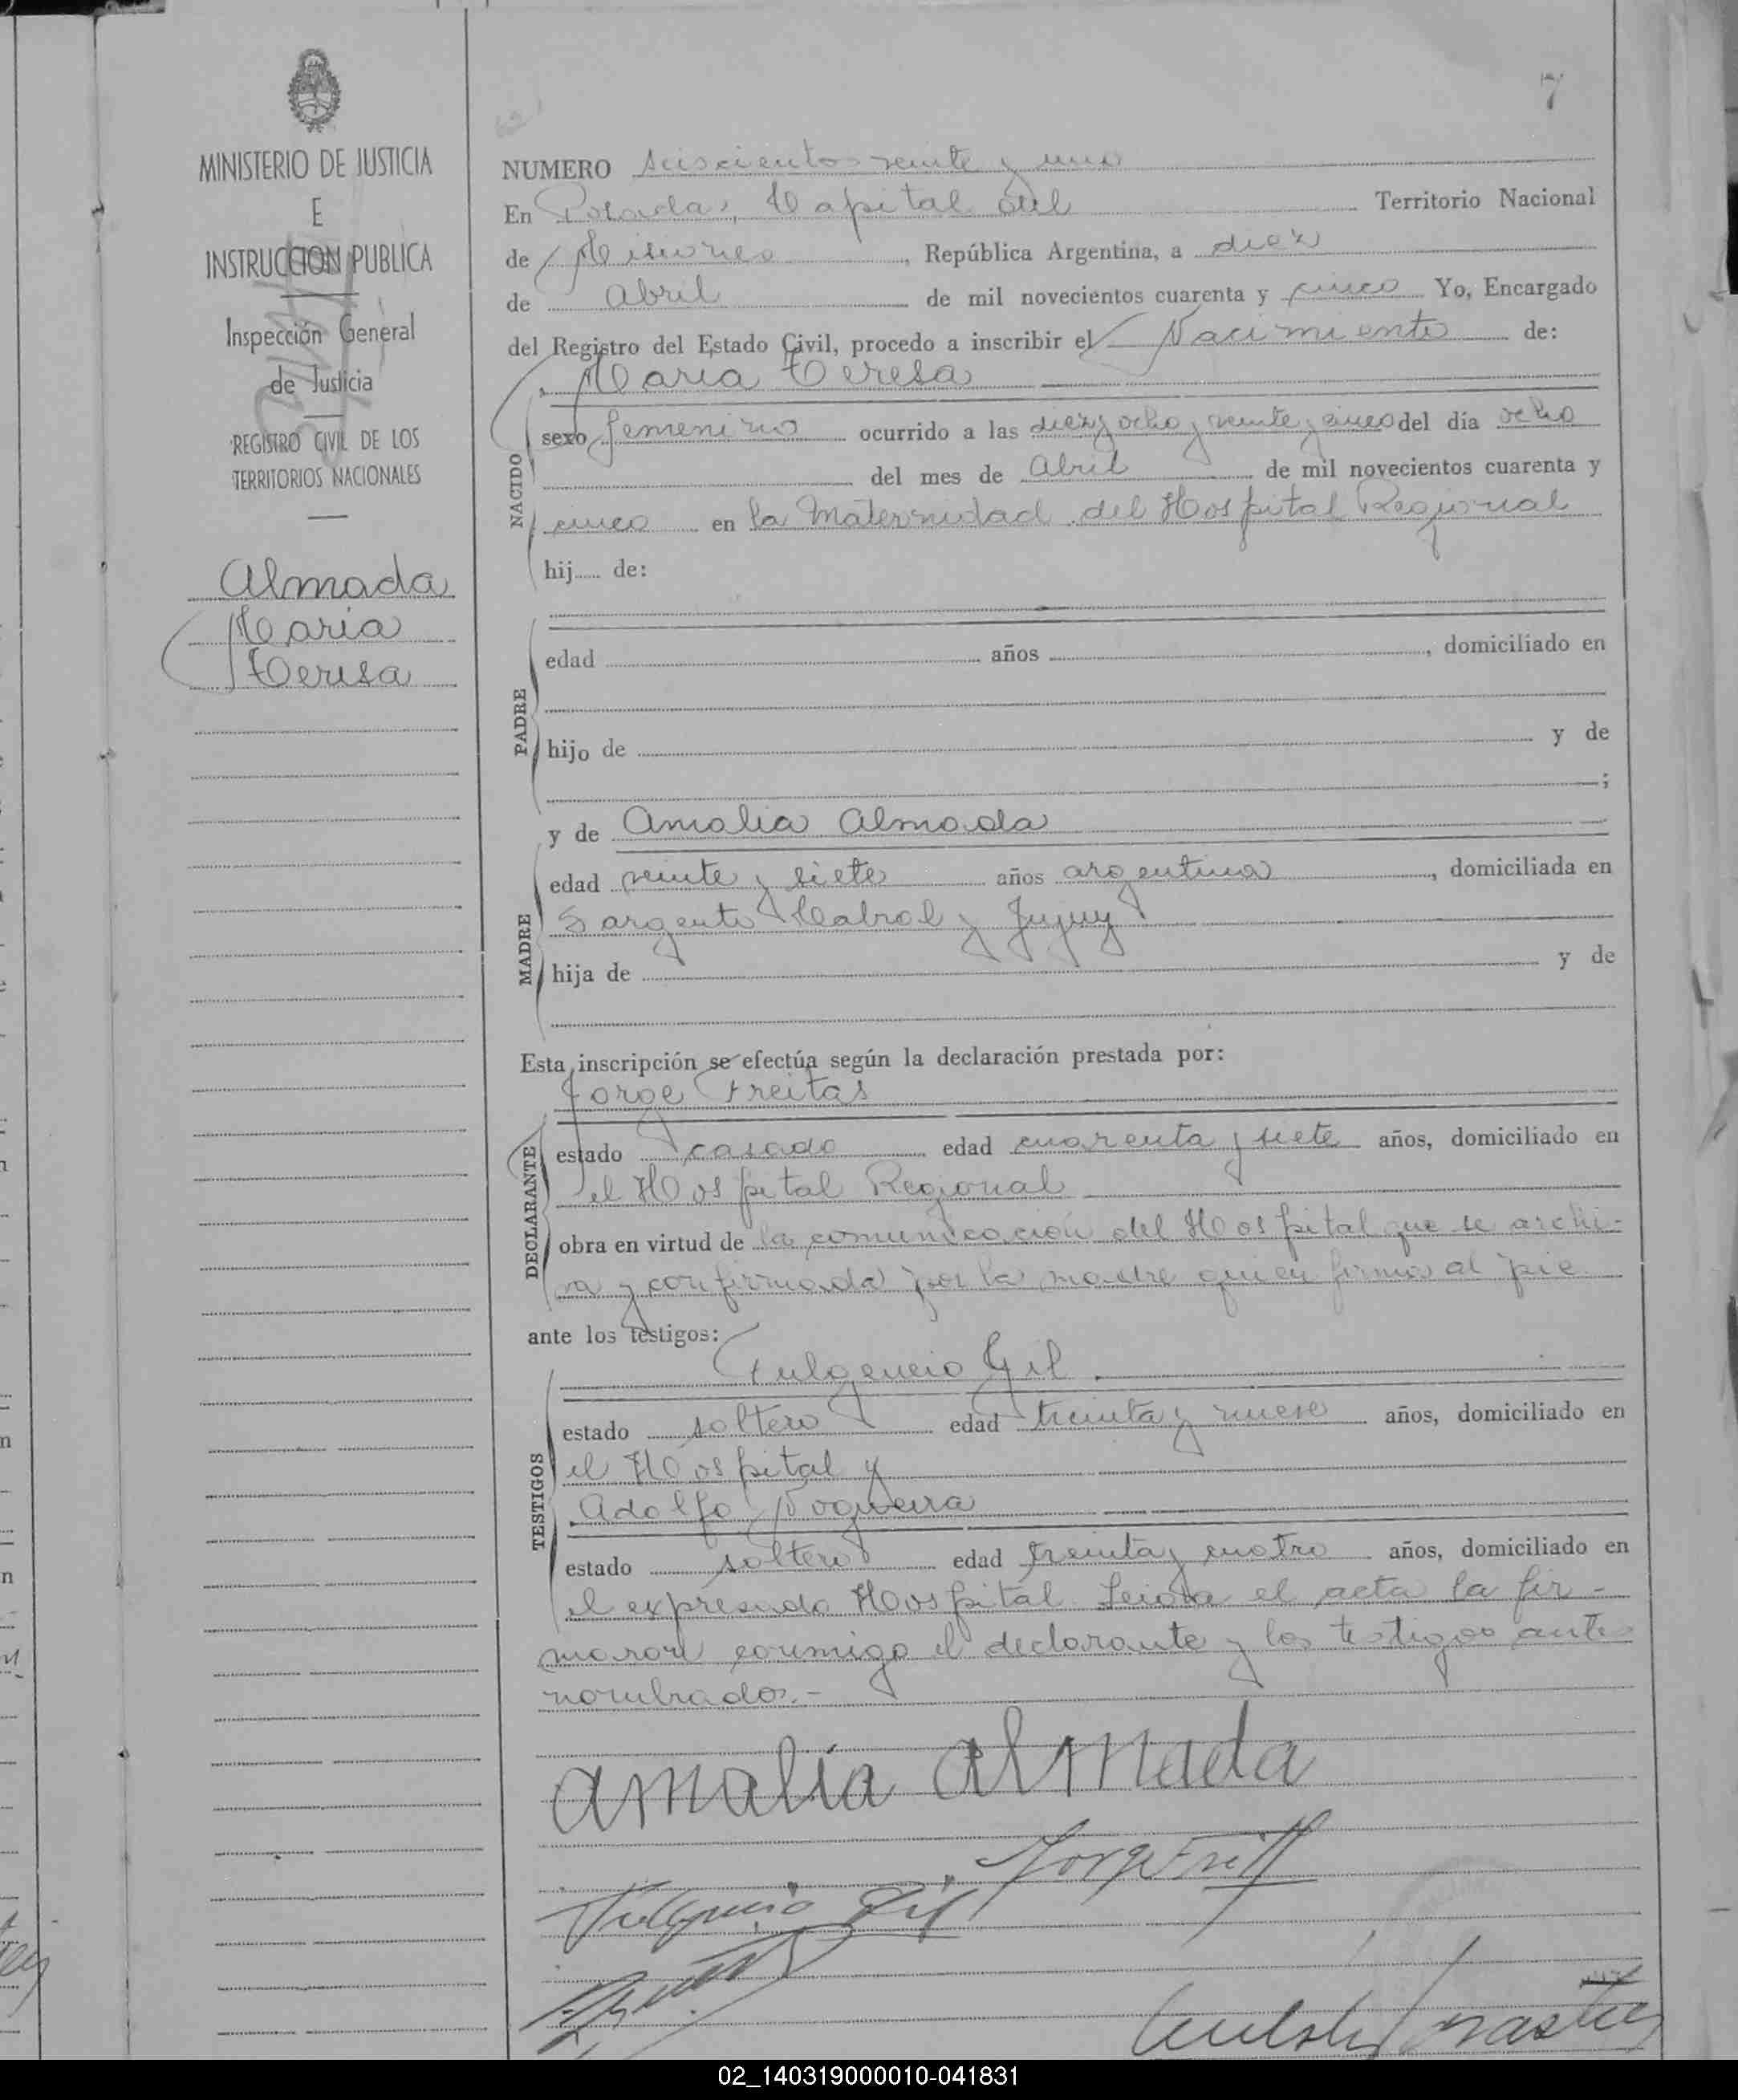 7
MINISTERIO DE JUSTICIA
E
INSTRUCCION PUBLICA
Inspección General
de Justicia
REGISTRO CIVIL DE LOS
TERRITORIOS NACIONALES
Almada
Maria
Teresa
NUMERO seiscientos veinte y uno
En Posadas, Capital del Territorio Nacional
de Misiones, República Argentina, a diez
de Abril de mil novecientos cuarenta y cinco Yo, Encargado
del Registro del Estado Civil, procedo a inscribir el Nacimiento de:
Maria Teresa
NACIDO
sexo femenino ocurrido a las diez y ocho y veinte y cinco del día ocho
del mes de Abril de mil novecientos cuarenta y
cinco en la Maternidad del Hospital Regional
hij..... de:
PADRE
edad años , domiciliado en
hijo de y de
;
y de Amalia Almada
MADRE
edad veinte y siete años argentina , domiciliada en
Sargento Cabral y Jujuy
hija de y de
Esta inscripción se efectúa según la declaración prestada por:
Jorge Freitas
DECLARANTE
estado casado edad cuarenta y siete años, domiciliado en
el Hospital Regional
obra en virtud de la comunicación del Hospital que se archi-
va y confirmada por la madre quien firma al pie
ante los testigos:
Fulgencio Gil
TESTIGOS
estado soltero edad treinta y nueve años, domiciliado en
el Hospital y
Adolfo Nogueira
estado soltero edad treinta y cuatro años, domiciliado en
el expresado Hospital. Leida el acta la fir-
maron conmigo el declarante y los testigos antes
nombrados.-
Amalia Almada
Jorge Freit
Fulgencio Gil
02_140319000010-041831